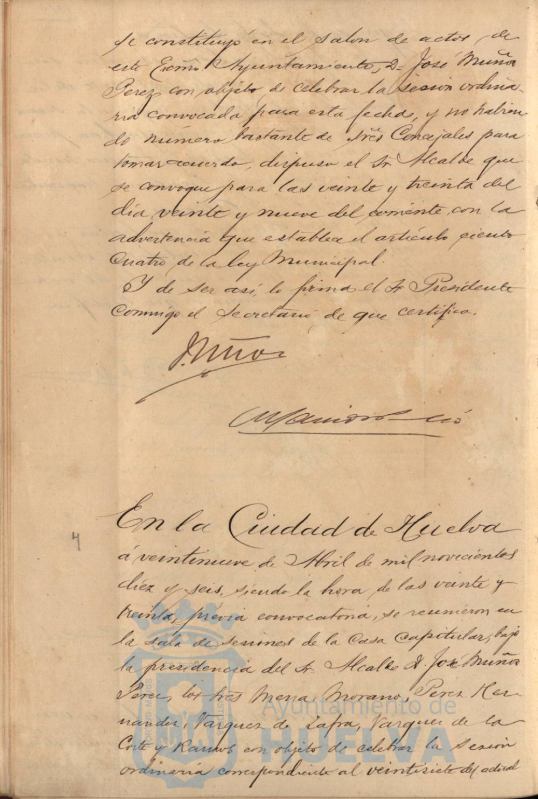 se constituyó en el salon de actos de
este Excmo Ayuntamiento, D. José Muñoz
Perez con objeto de celebrar la sesion ordina
ria convocada para esta fecha, y no habien
do número bastante de Sres Concejales para
tomar acuerdo, dispuso el Sr. Alcalde que
se convoque para las veinte y treinta del
dia veinte y nueve del corriente, con la
advertencia que establece el artículo ciento
cuatro de la ley Municipal.
Y de ser así, lo firma el Sr Presidente
conmigo el Secretario, de que certifico.
J. Muñoz
4
En la Ciudad de Huelva
á veintinueve de Abril de mil novecientos
diez y seis, siendo la hora de las veinte y
treinta, previa convocatoria, se reunieron en
la sala de sesiones de la Casa Capitular, bajo
la presidencia del Sr Alcalde D. José Muñoz
Perez, los Sres Mora Morano, Perez Her
nandez, Vazquez de Zafra, Vazquez de la
Corte y Ramos con objeto de celebrar la sesion
ordinaria correspondiente al veintisiete del actual
Ayuntamiento de
HUELVA